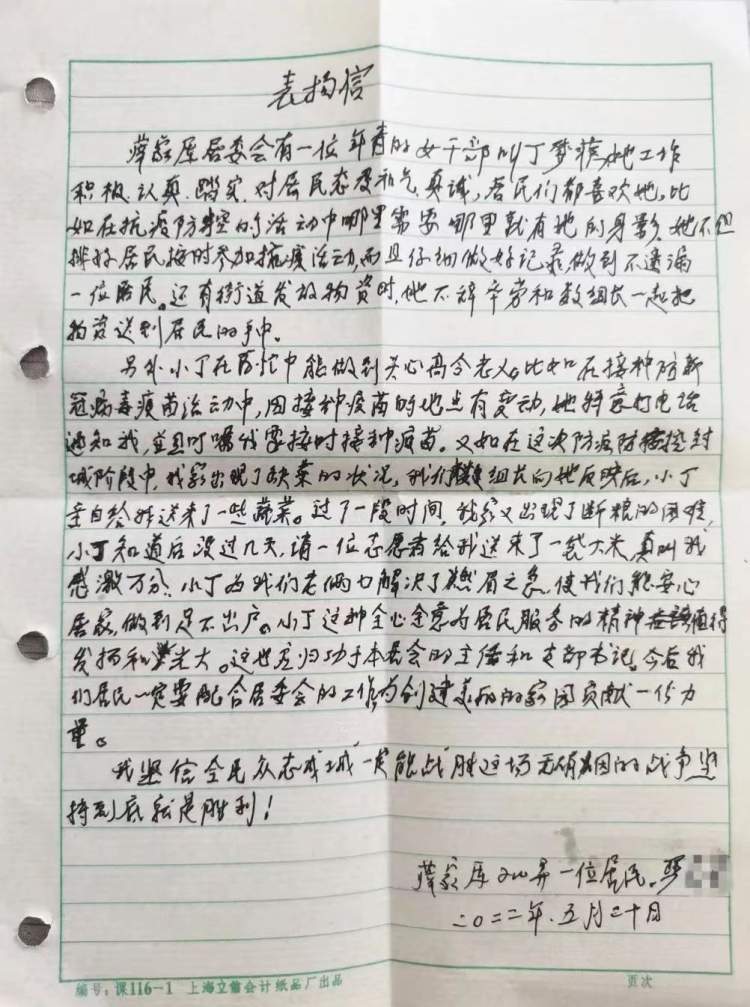 表扬信
蒋家厍居委会有一位年青的女干部叫丁梦蓓,她工作
积极、认真、踏实、对居民态度和气、真诚,居民们都喜欢她,比
如在抗疫防控的活动中哪里需要哪里就有她的身影,她不但
排好居民按时参加抗疫活动,而且仔细做好记录,做到不遗漏
一位居民。还有街道发放物资时,她不辞辛劳和数组长一起把
物资送到居民的手中。
另外小丁在百忙中能做到关心高令老人。比如在接种防新
冠病毒疫苗活动中,因接种疫苗的地点有变动,她特意打电话
通知我,并且叮嘱我要按时接种疫苗。又如在这次防疫防控封
城阶段中,我家出现了缺菜的状况,我们组长向她反映后,小丁
亲自给我送来了一些蔬菜。过了一段时间,我家又出现了断粮的困难,
小丁知道后没过几天,请一位志愿者给我送来了一袋大米,真叫我
感激万分,小丁为我们老俩口解决了燃眉之急,使我们能安心
居家,做到足不出户。小丁这种全心全意为居民服务的精神值得
发扬和光大。这也应归功于本居委会的主任和支部书记。今后我
们居民一定要配合居委会的工作,为创建美丽的家园贡献一份力
量。
我坚信全民众志成城一定能战胜这场无硝烟的战争坚
持到底就是胜利!
蒋家厍 弄一位居民.
二〇二二年.五月二十日
编号:课116-1 上海立信会计纸品厂出品 页次